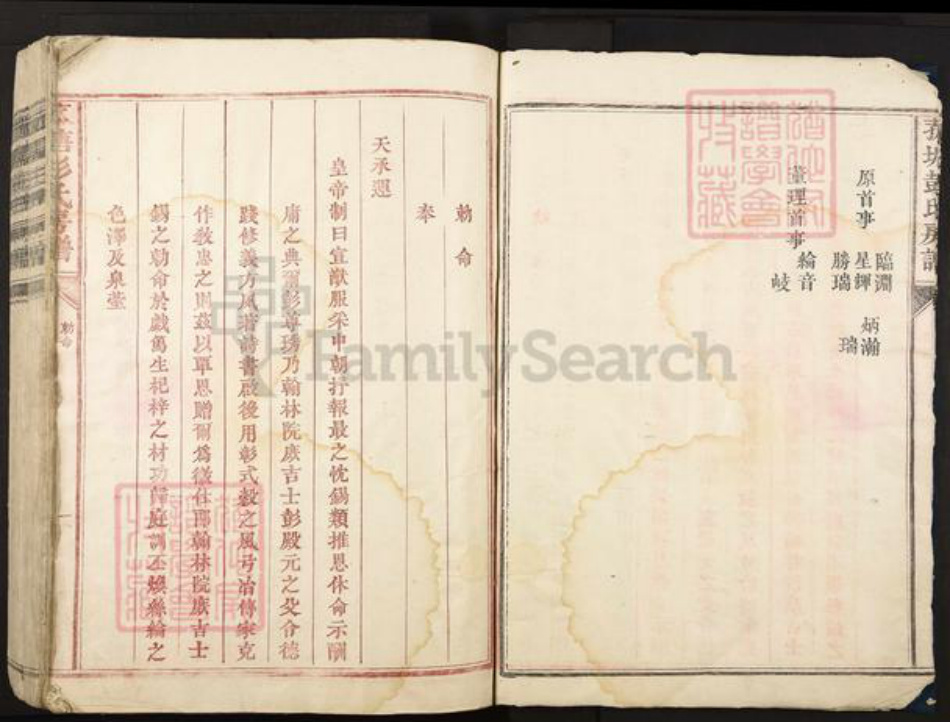 彭氏房譜
原首事
臨淵
星輝 炳瀚
勝瑞 瑞
董理首事
綸音
岐
勅命
奉
天承運
皇帝制曰宣猷服采中朝抒報最之忱錫類推恩休命示酬
庸之典爾彭尊琇乃翰林院庶吉士彭殿元之父令德
踐修義方夙著詩書啟後用彰式穀之風弓冶傳家克
作教忠之則茲以覃恩贈爾為徵仕郎翰林院庶吉士
錫之勅命於戲篤生杞梓之材功歸庭訓丕煥絲綸之
色澤及泉壤
彭氏房譜
勅命
FamilySearch